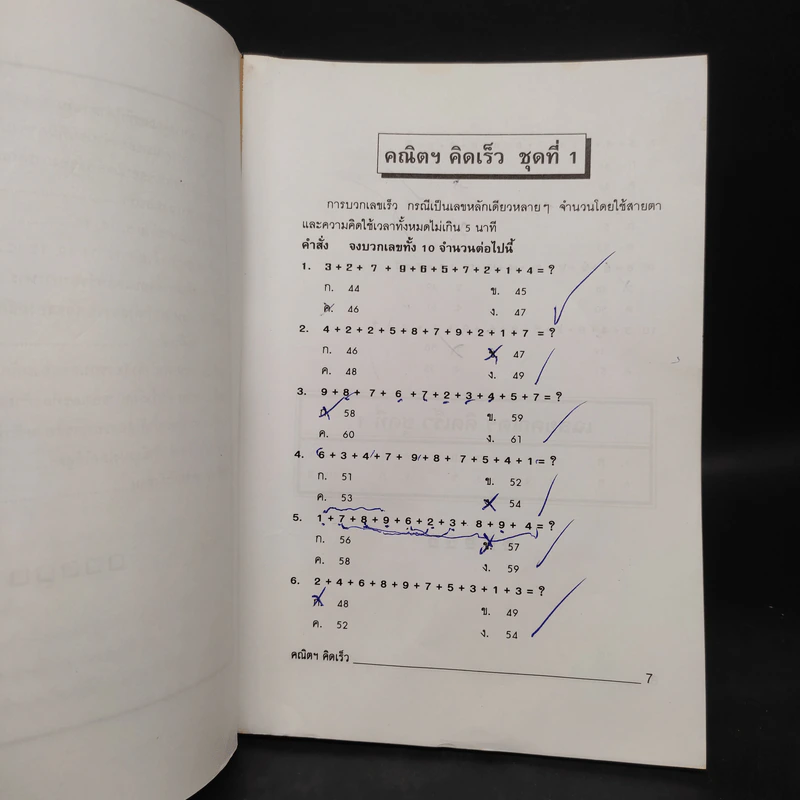 คณิตฯ คิดเร็ว ชุดที่ 1
การบวกเลขเร็ว กรณีเป็นเลขหลักเดียวหลายๆ จำนวนโดยใช้สายตา
และความคิดใช้เวลาทั้งหมดไม่เกิน 5 นาที
คำสั่ง จงบวกเลขทั้ง 10 จำนวนต่อไปนี้
1. 3+2+7+9+6+5+7+2+1+4=?
ก. 44 ข. 45
ค. 46 ง. 47
2. 4+2+2+5+8+7+9+2+1+7=?
ก. 46 ข. 47
ค. 48 ง. 49
3. 9+8+7+6+7+2+3+4+5+7=?
ก. 58 ข. 59
ค. 60 ง. 61
4. 6+3+4+7+9+8+7+5+4+1=?
ก. 51 ข. 52
ค. 53 ง. 54
5. 1+7+8+9+6+2+3+8+9+4=?
ก. 56 ข. 57
ค. 58 ง. 59
6. 2+4+6+8+9+7+5+3+1+3=?
ก. 48 ข. 49
ค. 52 ง. 54
คณิตฯ คิดเร็ว 7